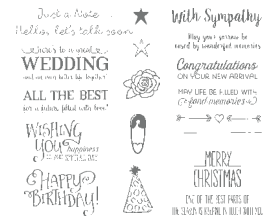 Just a Note...
Hello, let's talk soon
here's to a great
WEDDING
and an even better life together!
ALL THE BEST
for a future filled with love!
WISHING
YOU happiness
ON THIS SPECIAL DAY
HAPPY
BIRTHDAY!
With Sympathy
May your sorrow be
eased by wonderful memories
Congratulations
ON YOUR NEW ARRIVAL
MAY LIFE BE FILLED WITH
fond memories
MERRY
CHRISTMAS
ONE OF THE BEST PARTS OF
THE SEASON IS KEEPING IN TOUCH WITH YOU.